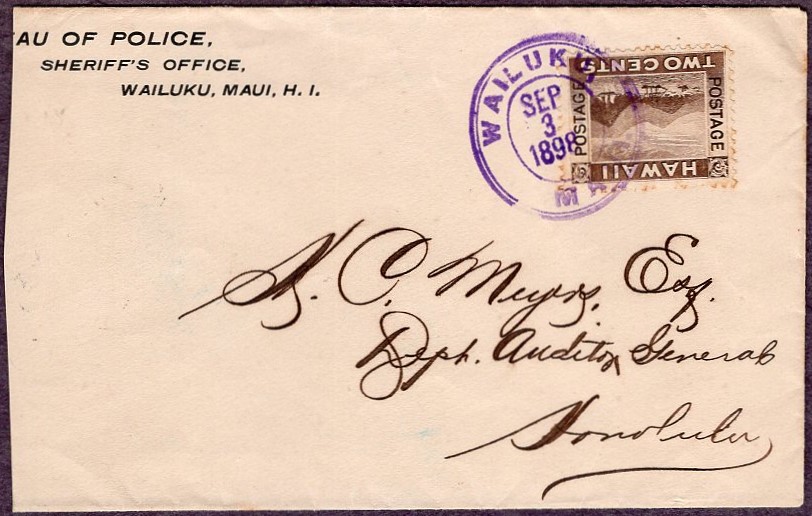 AU OF POLICE,
SHERIFF'S OFFICE,
WAILUKU, MAUI, H. I.
WAILUKU
SEP
3
1898
MAUI
TWO CENTS
POSTAGE
POSTAGE
HAWAII
2
2
H. C. Meyers, Esq.
Deph. Auditor General
Honolulu